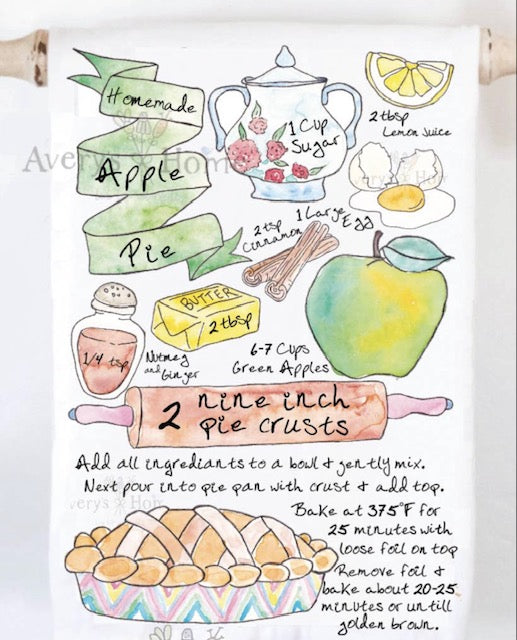 Homemade
Apple
Pie
1 Cup
Sugar
2 tbsp
Lemon Juice
1 Large
Egg
2 tsp
Cinnamon
BUTTER
2 tbsp
1/4 tsp
Nutmeg
and Ginger
6-7 Cups
Green Apples
2 nine inch
pie crusts
Add all ingrediants to a bowl & gently mix.
Next pour into pie pan with crust & add top.
Bake at 375°F for
25 minutes with
loose foil on top
Remove foil &
bake about 20-25
minutes or untill
golden brown.
Averys Home
Averys Home
Averys Home